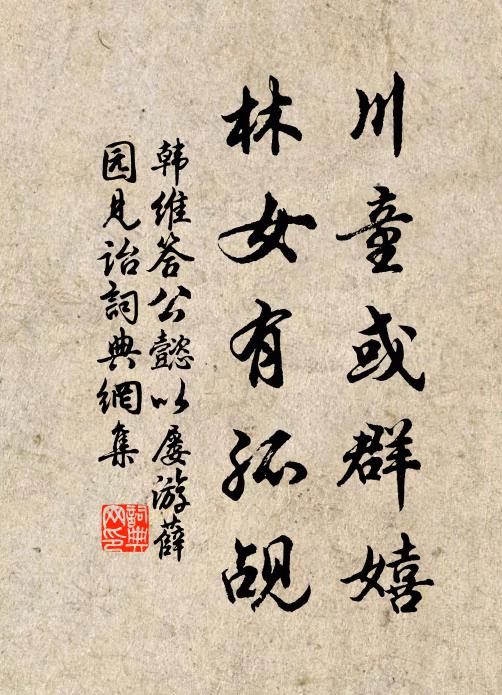 川童或群嬉
林女有孤觇
韩维答公懿以屡游薛
园见诒詞典網集
詞典网印